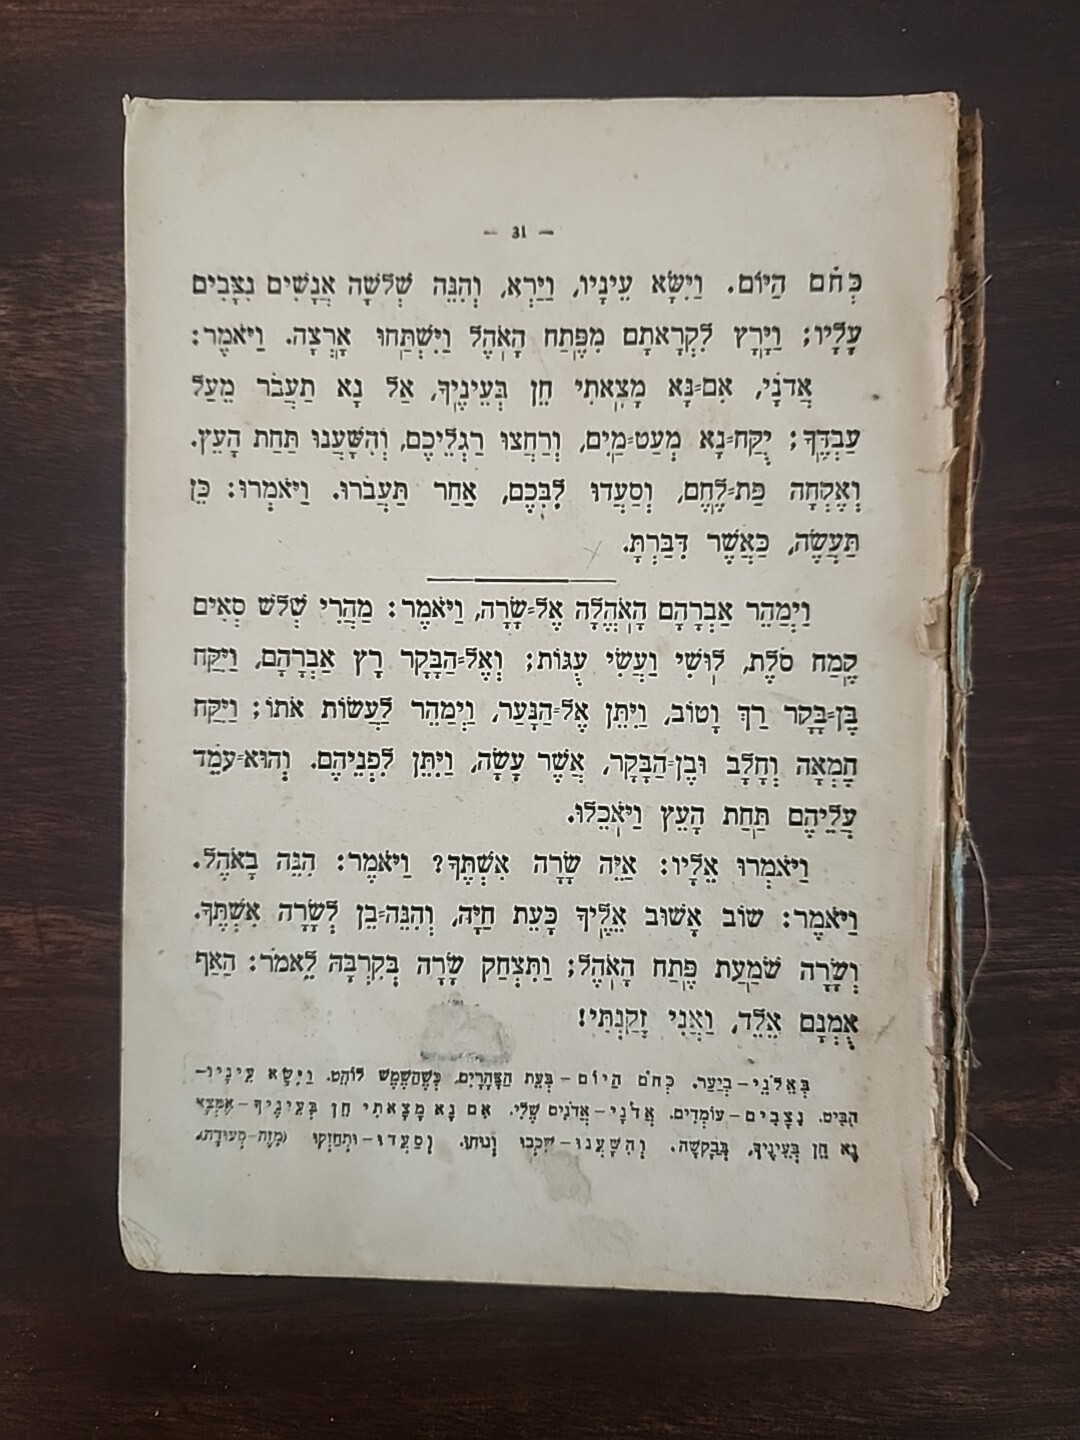 — 31 —
כְּחֹם הַיּוֹם. וַיִּשָּׂא עֵינָיו, וַיַּרְא, וְהִנֵּה שְׁלֹשָׁה אֲנָשִׁים נִצָּבִים
עָלָיו; וַיָּרָץ לִקְרָאתָם מִפֶּתַח הָאֹהֶל וַיִּשְׁתַּחוּ אָרְצָה. וַיֹּאמֶר:
אֲדֹנָי, אִם־נָא מָצָאתִי חֵן בְּעֵינֶיךָ, אַל נָא תַעֲבֹר מֵעַל
עַבְדֶּךָ; יֻקַּח־נָא מְעַט־מַיִם, וְרַחֲצוּ רַגְלֵיכֶם, וְהִשָּׁעֲנוּ תַּחַת הָעֵץ.
וְאֶקְחָה פַּת־לֶחֶם, וְסַעֲדוּ לִבְּכֶם, אַחַר תַּעֲבֹרוּ. וַיֹּאמְרוּ: כֵּן
תַּעֲשֶׂה, כַּאֲשֶׁר דִּבַּרְתָּ.
וַיְמַהֵר אַבְרָהָם הָאֹהֱלָה אֶל־שָׂרָה, וַיֹּאמֶר: מַהֲרִי שְׁלֹשׁ סְאִים
קֶמַח סֹלֶת, לוּשִׁי וַעֲשִׂי עֻגּוֹת; וְאֶל־הַבָּקָר רָץ אַבְרָהָם, וַיִּקַּח
בֶּן־בָּקָר רַךְ וָטוֹב, וַיִּתֵּן אֶל־הַנַּעַר, וַיְמַהֵר לַעֲשׂוֹת אֹתוֹ; וַיִּקַּח
חֶמְאָה וְחָלָב וּבֶן־הַבָּקָר, אֲשֶׁר עָשָׂה, וַיִּתֵּן לִפְנֵיהֶם. וְהוּא־עֹמֵד
עֲלֵיהֶם תַּחַת הָעֵץ וַיֹּאכֵלוּ.
וַיֹּאמְרוּ אֵלָיו: אַיֵּה שָׂרָה אִשְׁתֶּךָ? וַיֹּאמֶר: הִנֵּה בָאֹהֶל.
וַיֹּאמֶר: שׁוֹב אָשׁוּב אֵלֶיךָ כָּעֵת חַיָּה, וְהִנֵּה־בֵן לְשָׂרָה אִשְׁתֶּךָ.
וְשָׂרָה שֹׁמַעַת פֶּתַח הָאֹהֶל; וַתִּצְחַק שָׂרָה בְּקִרְבָּהּ לֵאמֹר: הַאַף
אֻמְנָם אֵלֵד, וַאֲנִי זָקַנְתִּי!
בְּאֵלֹנֵי – בְּיַעַר. כְּחֹם הַיּוֹם – בְּעֵת הַצָּהֳרַיִם, כְּשֶׁהַשֶּׁמֶשׁ לוֹהֵט. וַיִּשָּׂא עֵינָיו –
הִבִּיט. נִצָּבִים – עוֹמְדִים. אֲדֹנָי – אֲדֹנִים שֶׁלִּי. אִם נָא מָצָאתִי חֵן בְּעֵינֶיךָ – אֶמְצָא
נָא חֵן בְּעֵינֶיךָ, בְּבַקָּשָׁה. וְהִשָּׁעֲנוּ – שִׁכְבוּ וְנוּחוּ. וְסַעֲדוּ – וּתְחַזְּקוּ (מִזֶּה – סְעוּדָה).